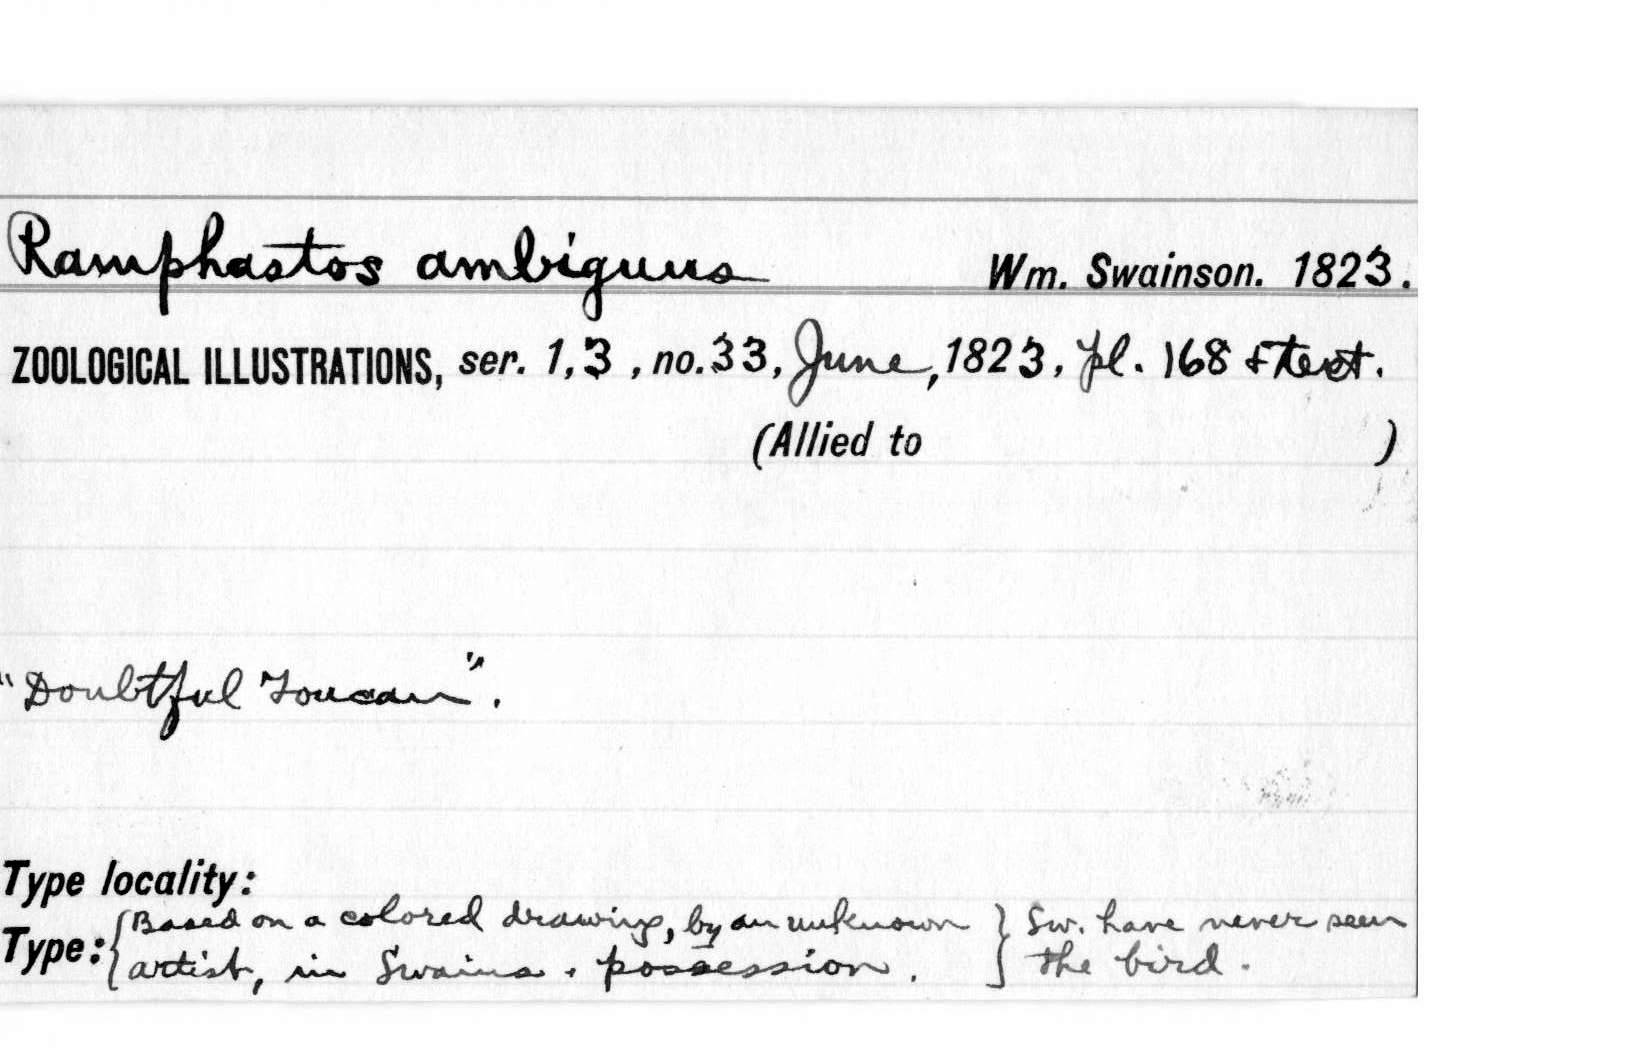 Ramphastos ambiguus Wm. Swainson. 1823.
ZOOLOGICAL ILLUSTRATIONS, ser. 1,3, no.33, June, 1823, pl. 168 + text.
(Allied to )
"Doubtful Toucan".
Type locality:
Type: { Based on a colored drawing, by an unknown } Sw. have never seen
artist, in Swains. possession. the bird.